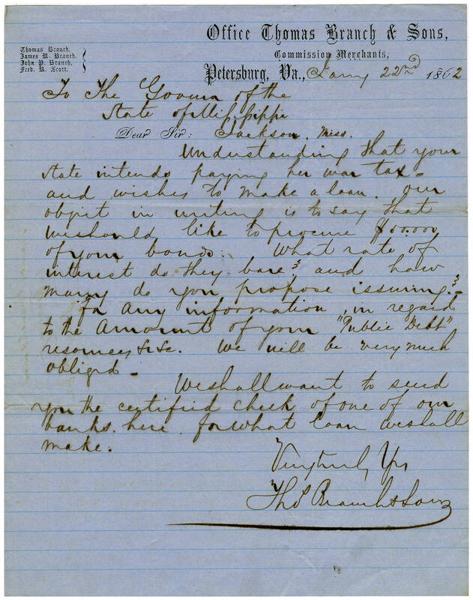 Office Thomas Branch & Sons,
Commission Merchants,
Thomas Branch,
James R. Branch,
John P. Branch,
Fred. R. Scott.
Petersburg, Va., Jany 22nd 1862
To The Govenr of the
State of Missippi
Dear Sir: Jackson, Miss.
Understanding that your
state intends paying her war tax
and wishes to make a loan. Our
objet in writing is to say that
we should like to procure
of your bonds. What rate of
interest do they bare? and how
many do you propose issuing?
for any information, in regard
to the amount of your "Public Debt"
resources &c &c. We will be very much
obliged -
We shall want to send
you the certified check of one of our
banks, here, for what loan we shall
make.
Very truly Yrs
Thos Branch & Sons